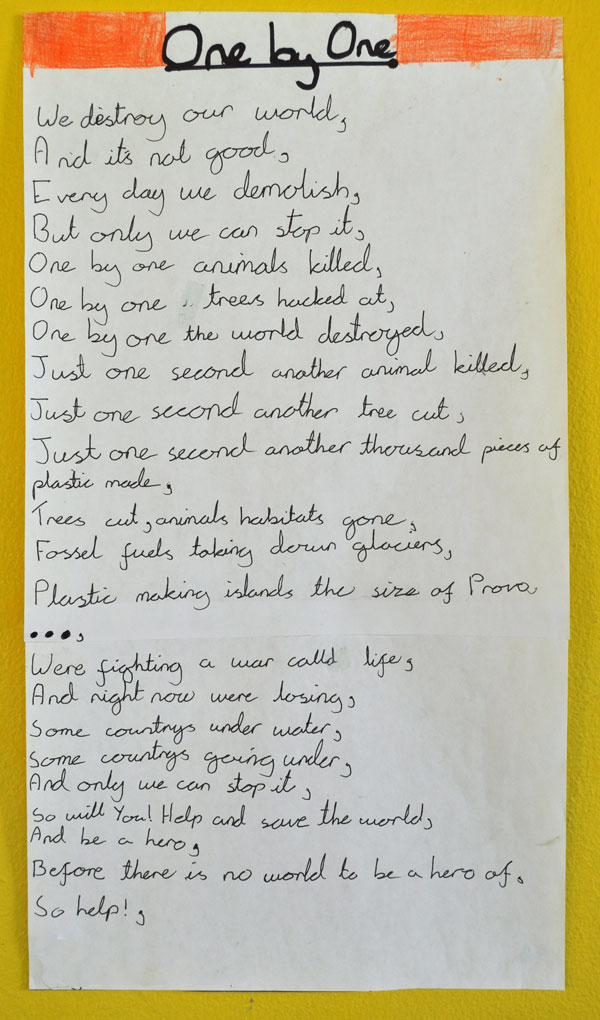 One by One.
We destroy our world,
And it's not good,
Every day we demolish,
But only we can stop it,
One by one animals killed,
One by one trees hacked at,
One by one the world destroyed,
Just one second another animal killed,
Just one second another tree cut,
Just one second another thousand pieces of
plastic made,
Trees cut, animals habitats gone,
Fossel fuels taking down glaciers,
Plastic making islands the size of Prova
...,
Were fighting a war calld life,
And right now were losing,
Some countrys under water,
Some countrys going under,
And only we can stop it,
So will You! Help and save the world,
And be a hero,
Before there is no world to be a hero of,
So help!,